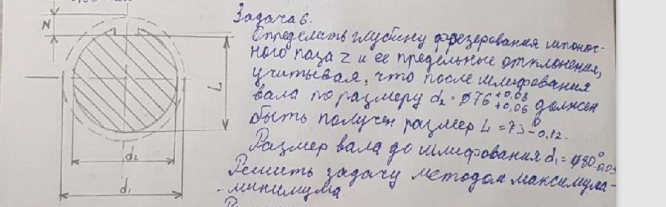 Задача 6.
Определить глубину фрезерования шпоноч-
ного паза Z и ее предельные отклонения,
учитывая, что после шлифования
вала по размеру d₂ = ⌀76 +0,08 +0,06 должен
быть получен размер L = 73 0 -0,12.
Размер вала до шлифования d₁ = ⌀80 0
Решить задачу методом максимума-
-минимума
Z
L
d₂
d₁